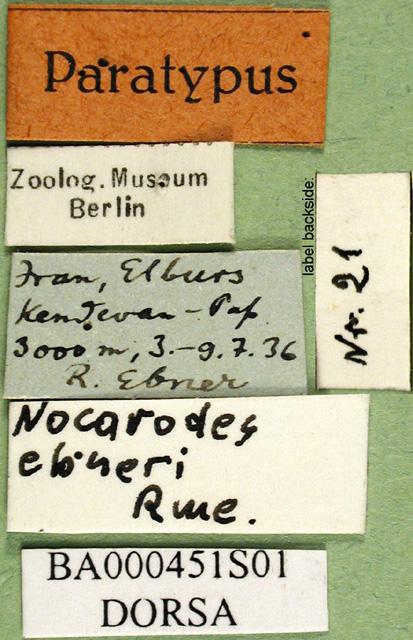 Paratypus
Zoolog. Museum
Berlin
label backside:
Nr. 21
Iran, Elburs
Kendevan-Paß
3000 m, 3.-9.7.36
R. Ebner
Nocarodes
ebneri
Rme.
BA000451S01
DORSA